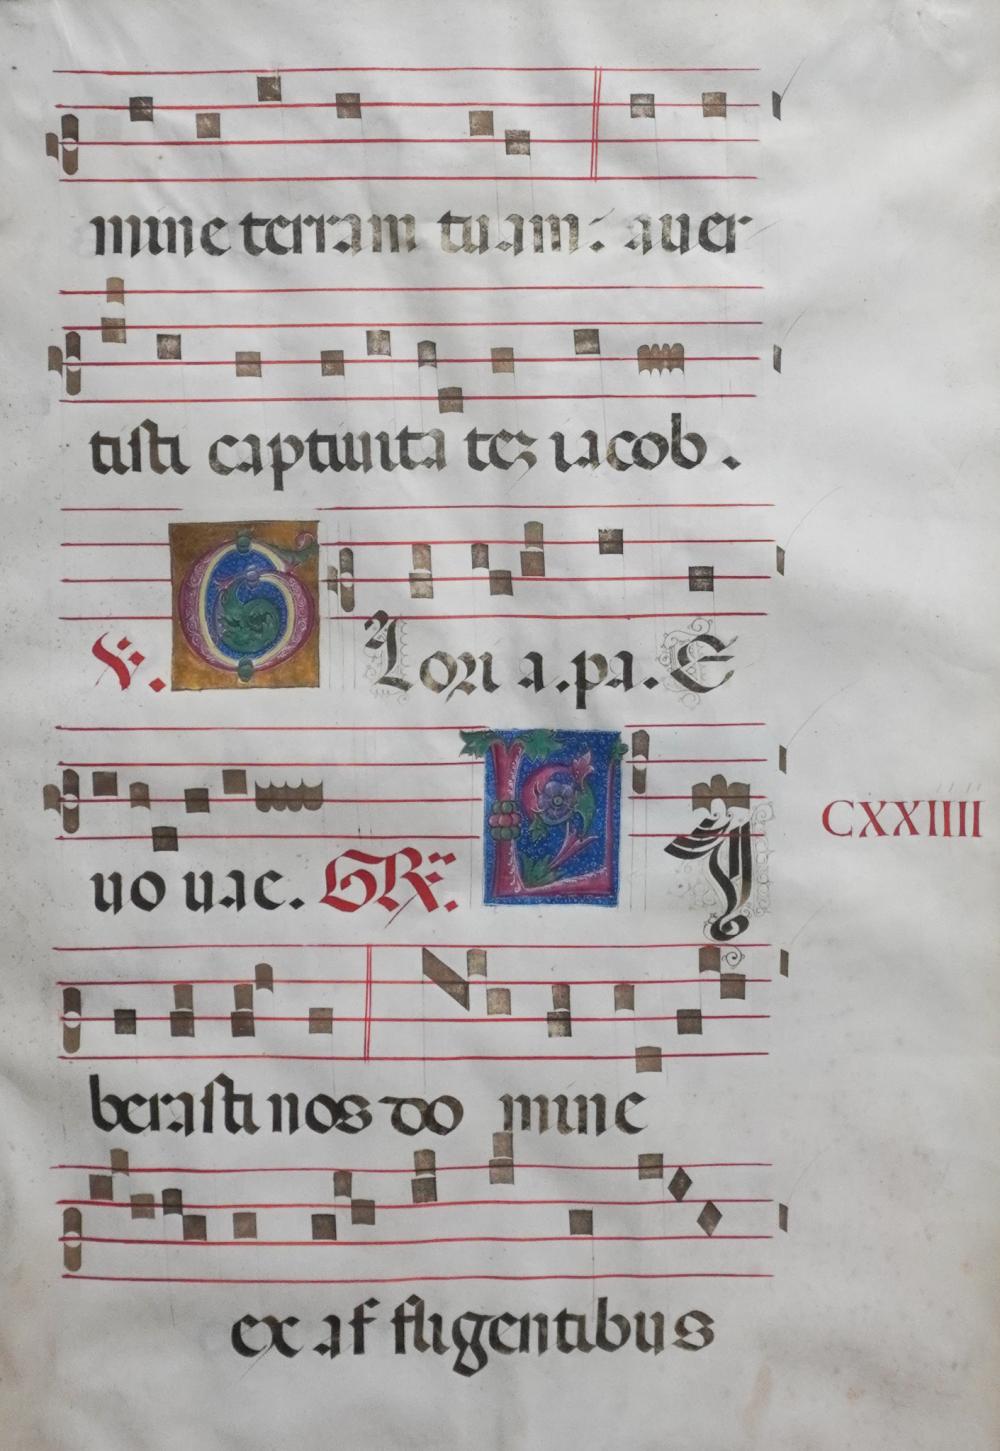 mine terram tuam: auer
tisti captiuita tez iacob.
V. G Lori a.pa. E
uo uae. GR. L I CXXIIII
berasti nos do mine
ex af fligentibus